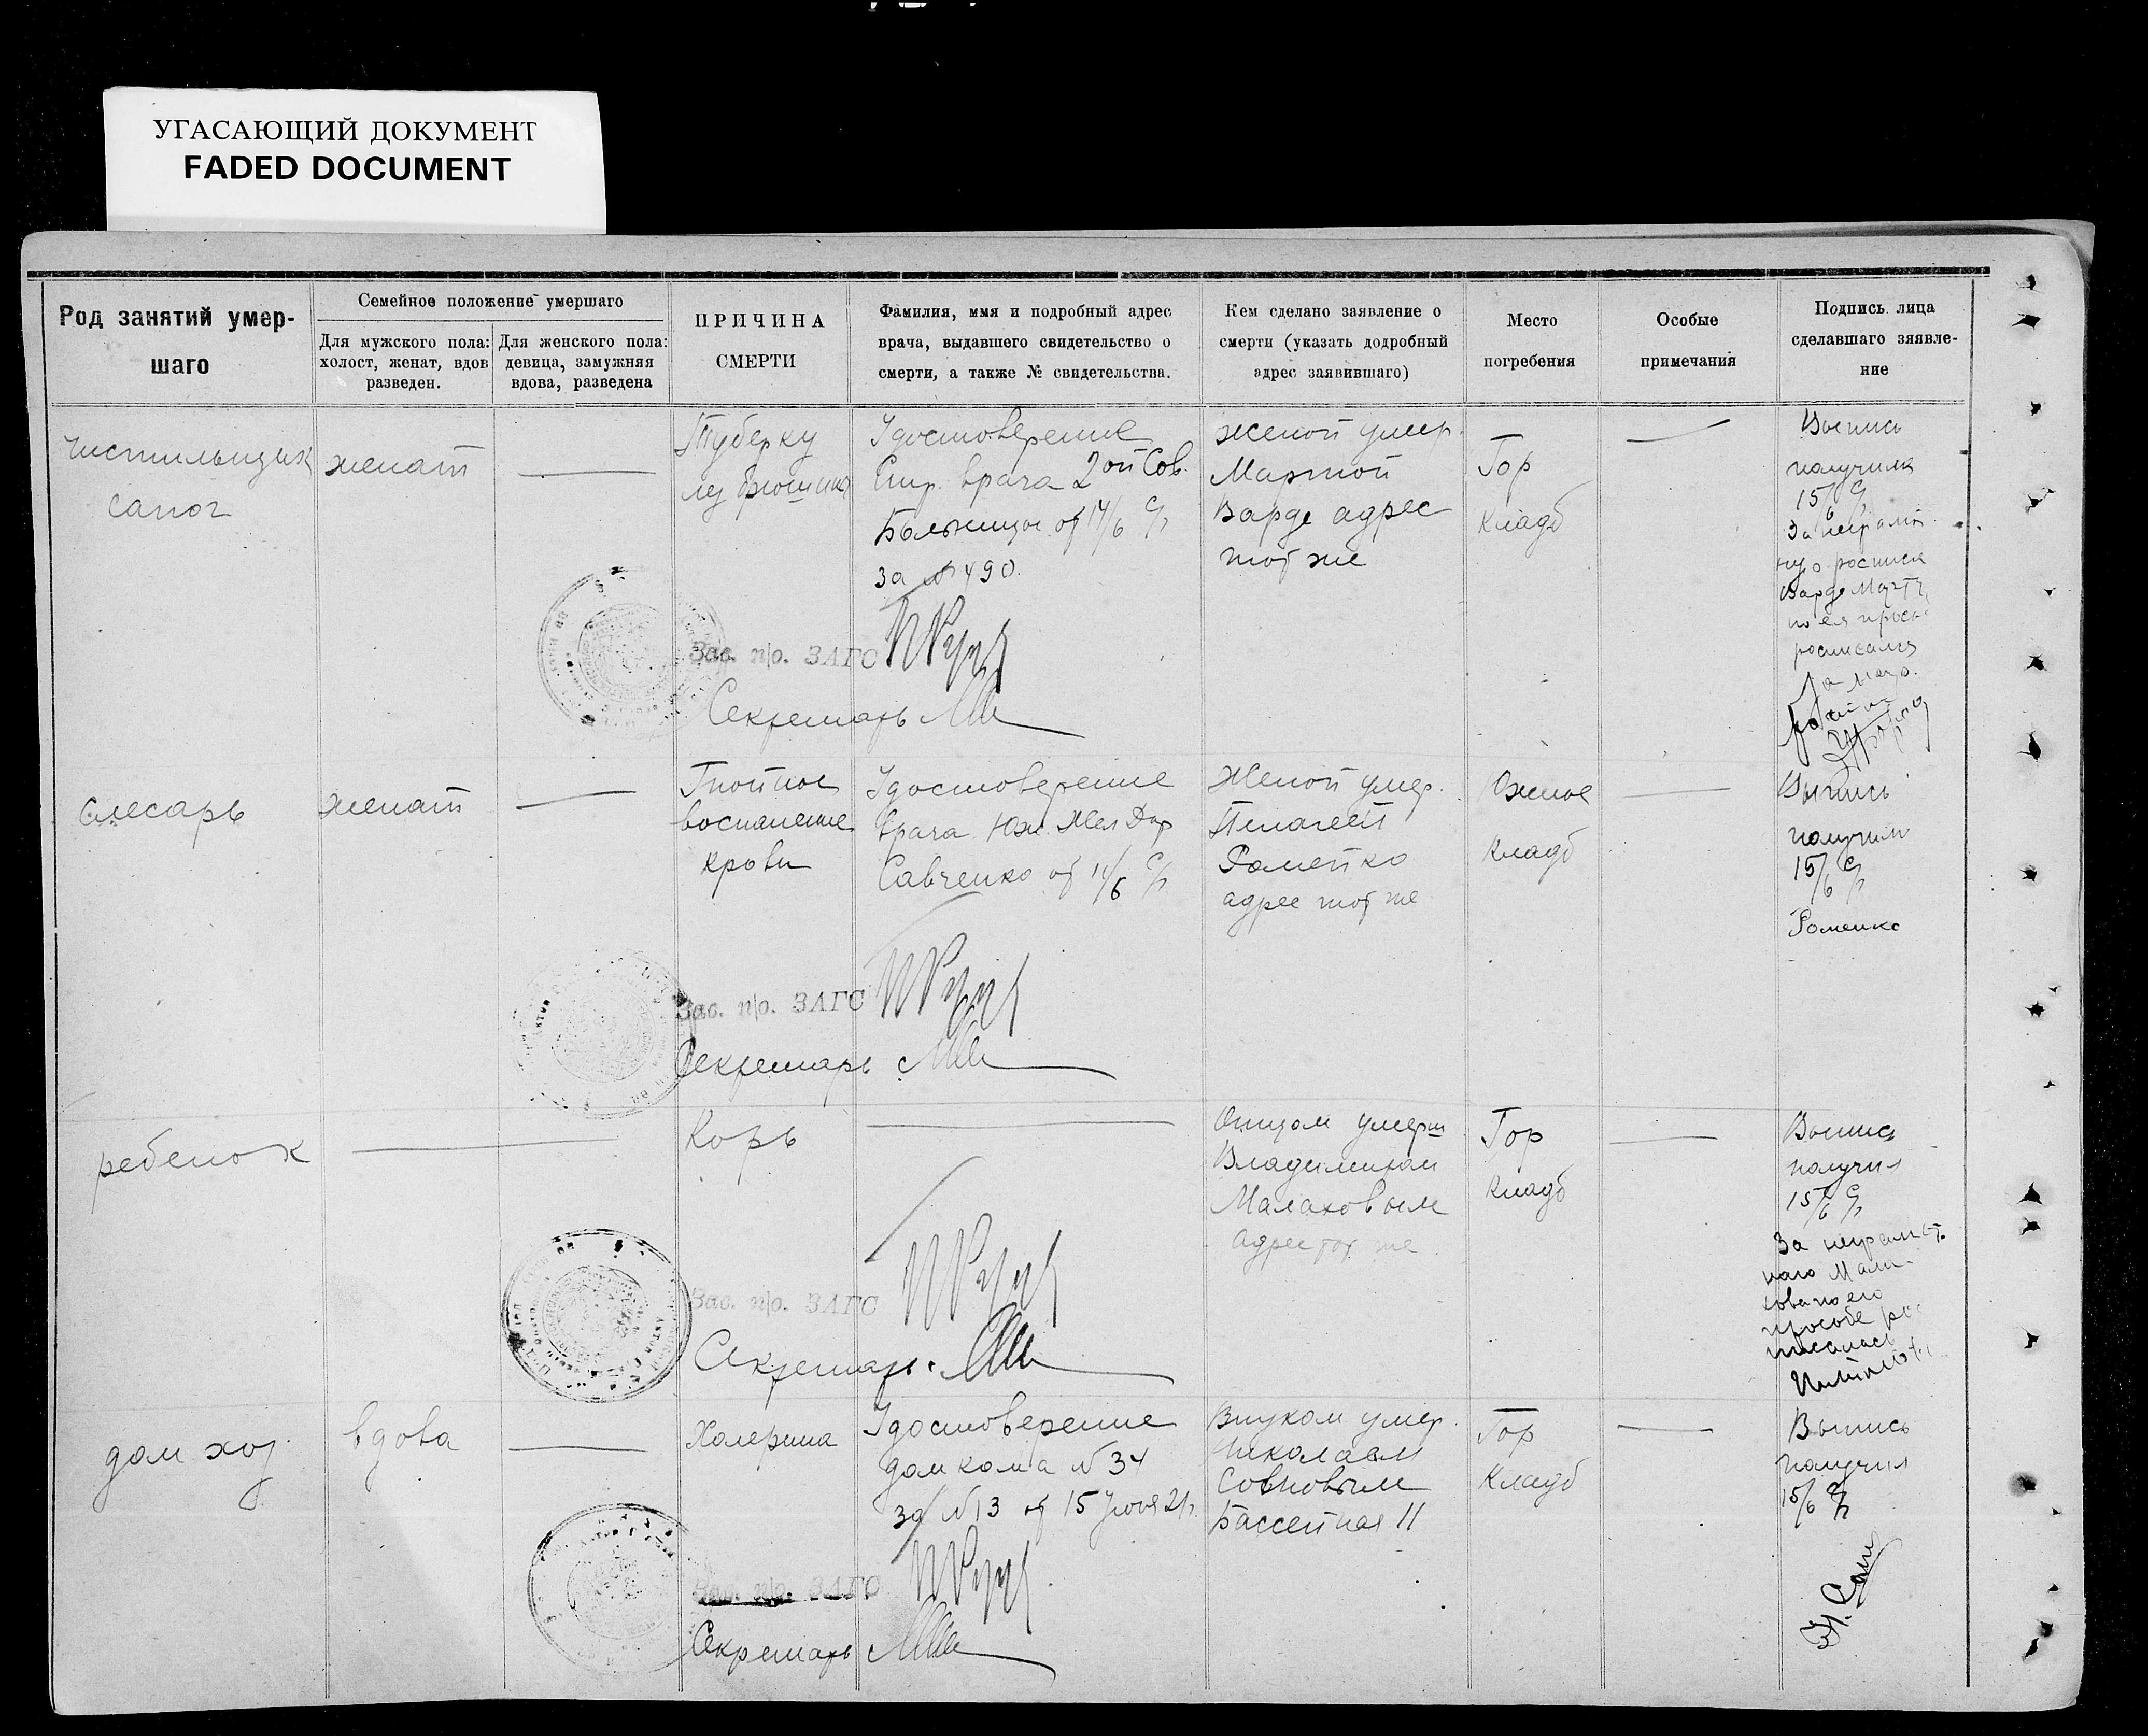 УГАСАЮЩИЙ ДОКУМЕНТ
FADED DOCUMENT
Род занятий умер-
шаго
Семейное положение умершаго
Для мужского пола:
холост, женат, вдов
разведен.
Для женского пола:
девица, замужняя
вдова, разведена
ПРИЧИНА
СМЕРТИ
Фамилия, имя и подробный адрес
врача, выдавшего свидетельство о
смерти, а также № свидетельства.
Кем сделано заявление о
смерти (указать додробный
адрес заявившаго)
Место
погребения
Особые
примечания
Подпись лица
сделавшаго зяявле-
ние
чистильщик
сапог
женат
Туберку
лез
Удостоверение
врача 2ой Сов.
Больницы от 14/6
за № 490
женой умер.
Мартой
Варде адрес
тот же
Гор
Кладб
Выпись
получила
15/6
За неграмот
ную
Варде
росписался
Зав. п/о. ЗАГС
Секретарь
слесарь
женат
Гнойное
воспаление
крови
Удостоверение
врача Юж Жел Дор
Савченко от 11/6
Женой умер.
Пелагеей
Роменко
адрес тот же
Южное
кладб
Выпись
получил
15/6
Роменко
Зав. п/о. ЗАГС
Секретарь
ребенок
Корь
Отцом умерш
Владимиром
Малаховым
адрес тот же
Гор
кладб
Выпись
получил
15/6
За неграмот
наго Мала
хова по его
просьбе рос
писалась
Зав. п/о. ЗАГС
Секретарь
дом хоз
вдова
Холерина
Удостоверение
домкома № 34
за № 13 от 15 Июня 21г.
Внуком умер.
Николаем
Совновым
Бассейная 11
Гор
Кладб
Выпись
получил
15/6
Зав. п/о. ЗАГС
Секретарь